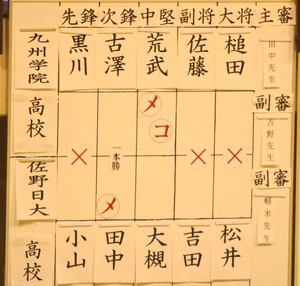 先鋒 次鋒 中堅 副将 大将 主審
九州学院高校 黒川 古澤 荒武 佐藤 槌田 田中先生
メ
コ
副審
吉野先生
× 一本勝 × ×
メ
副審
軽米先生
佐野日大高校 小山 田中 大槻 吉田 松井